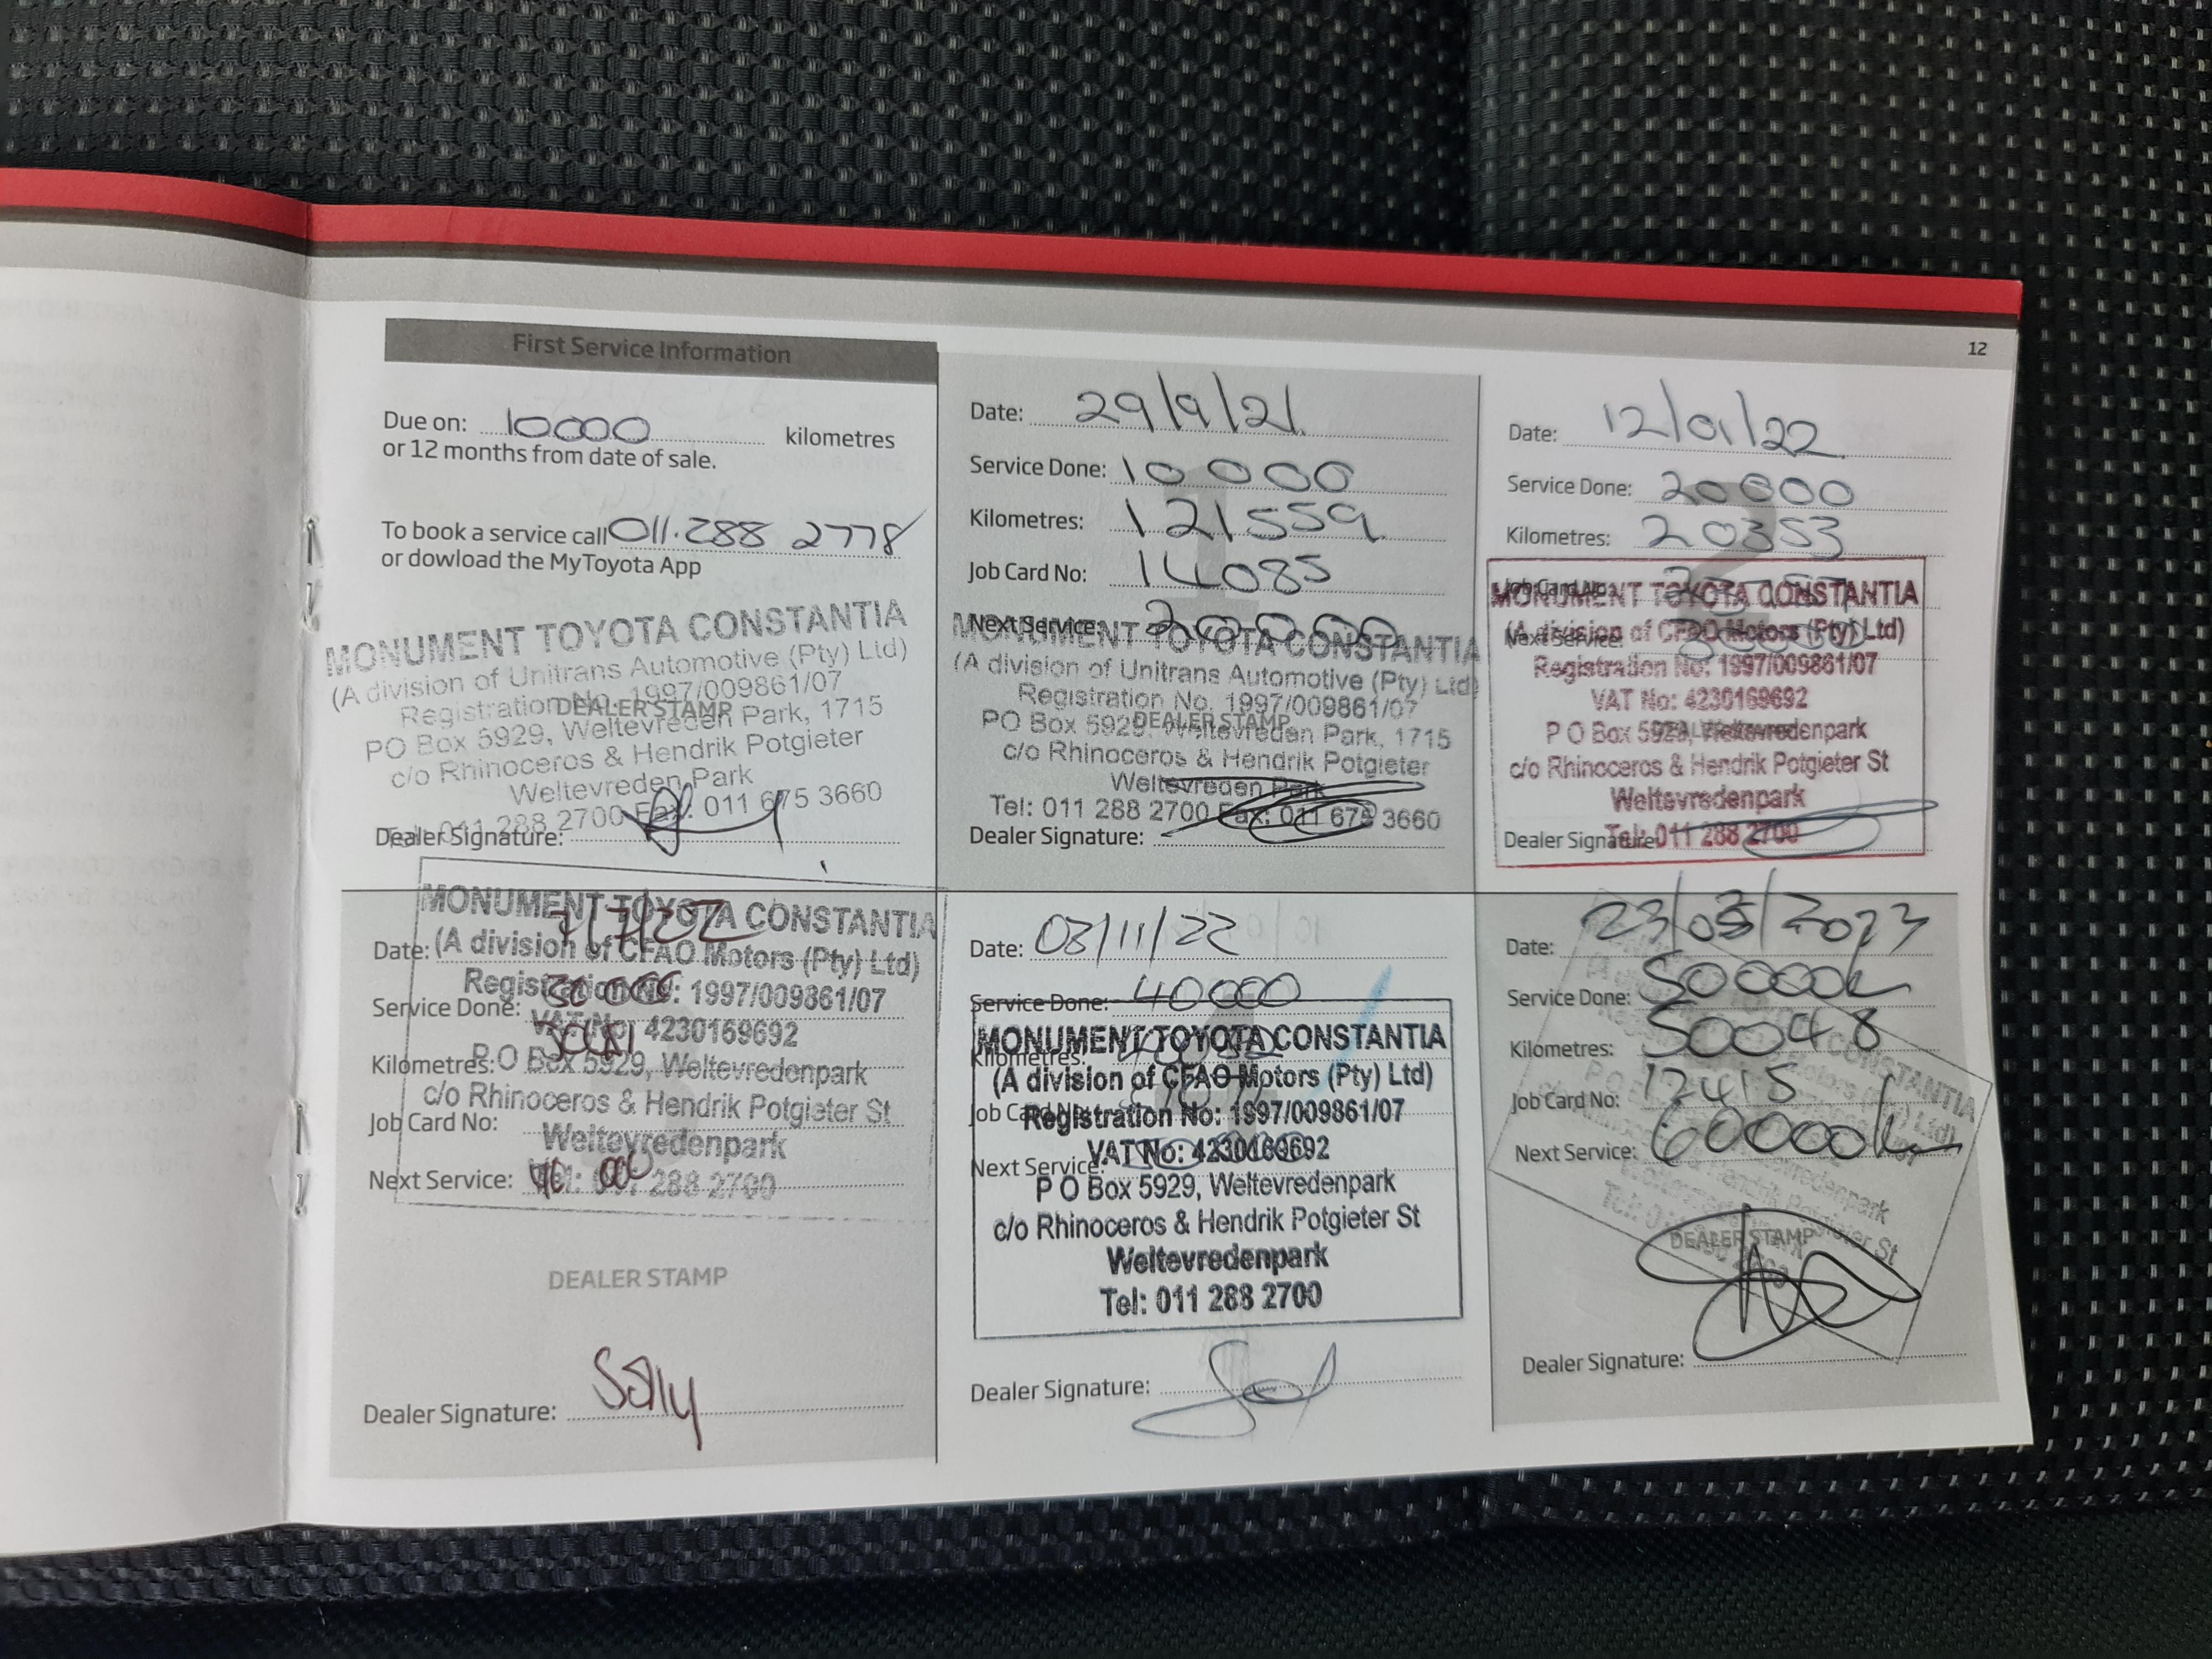 12
First Service Information
Due on: 10000 kilometres
or 12 months from date of sale.
To book a service call 011.288 2778
or dowload the MyToyota App
MONUMENT TOYOTA CONSTANTIA
(A division of Unitrans Automotive (Pty) Ltd)
Registration No. 1997/009861/07
DEALER STAMP
PO Box 5929, Weltevreden Park, 1715
c/o Rhinoceros & Hendrik Potgieter
Weltevreden Park
Tel: 011 288 2700 Fax: 011 675 3660
Dealer Signature:
Date: 29/9/21.
Service Done: 10 000
Kilometres: 121559
Job Card No: 14085
Next Service: 20000
MONUMENT TOYOTA CONSTANTIA
(A division of Unitrans Automotive (Pty) Ltd)
Registration No. 1997/009861/07
DEALER STAMP
PO Box 5929, Weltevreden Park, 1715
c/o Rhinoceros & Hendrik Potgieter
Weltevreden Park
Tel: 011 288 2700 Fax: 011 675 3660
Dealer Signature:
Date: 12/01/22
Service Done: 20000
Kilometres: 20353
Job Card No:
MONUMENT TOYOTA CONSTANTIA
Next Service: 30000
(A division of CFAO Motors (Pty) Ltd)
Registration No: 1997/009861/07
VAT No: 4230169692
P O Box 5929, Weltevredenpark
c/o Rhinoceros & Hendrik Potgieter St
Weltevredenpark
Tel: 011 288 2700
Dealer Signature:
MONUMENT TOYOTA CONSTANTIA
Date: 7/7/22
(A division of CFAO Motors (Pty) Ltd)
Registration No: 1997/009861/07
Service Done: 30 000
VAT No: 4230169692
Kilometres:
P.O Box 5929, Weltevredenpark
c/o Rhinoceros & Hendrik Potgieter St
Job Card No:
Weltevredenpark
Next Service: 40 000
Tel: 011 288 2700
DEALER STAMP
Dealer Signature: Sally
Date: 03/11/22
Service Done: 40000
MONUMENT TOYOTA CONSTANTIA
Kilometres:
(A division of CFAO Motors (Pty) Ltd)
Job Card No:
Registration No: 1997/009861/07
VAT No: 4230169692
Next Service:
P O Box 5929, Weltevredenpark
c/o Rhinoceros & Hendrik Potgieter St
Weltevredenpark
Tel: 011 288 2700
Dealer Signature:
Date: 23/03/2023
Service Done: 50000k
Kilometres: 50048
Job Card No: 12415
Next Service: 60000km
DEALER STAMP
Dealer Signature: